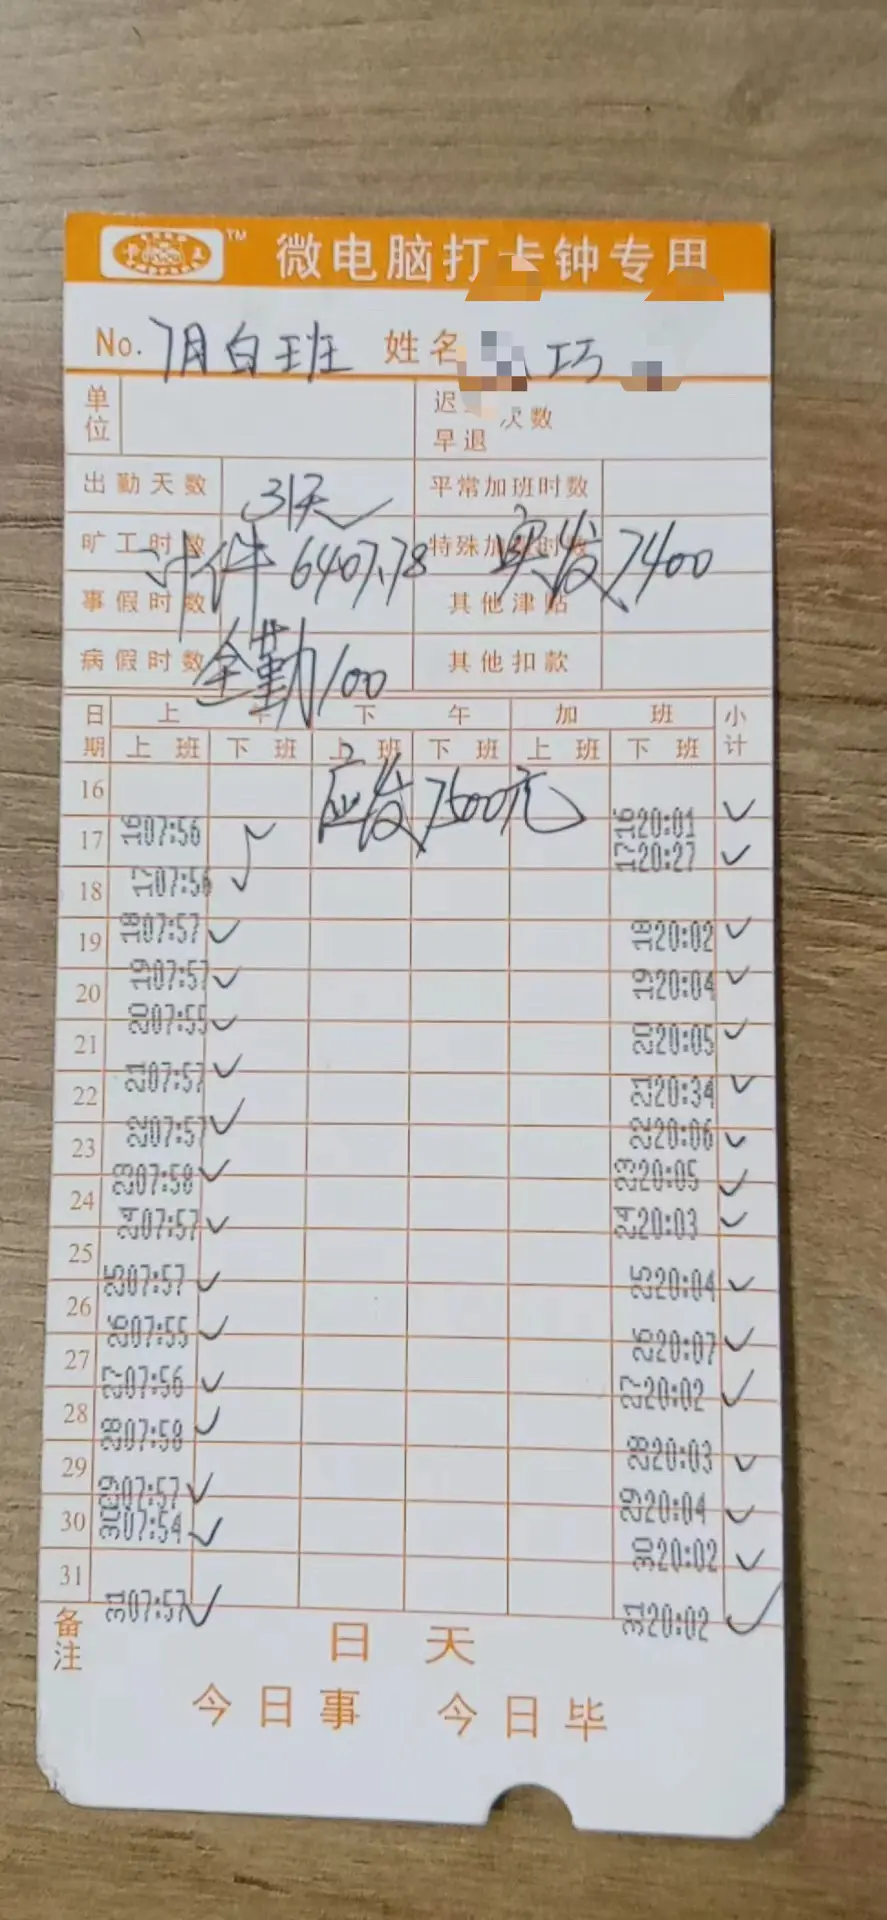 微电脑打卡钟专用
TM
No. 7月白班 姓名 巧
单位 迟 次数
早退
出勤天数 31天 平常加班时数
旷工时数 特殊加班时数
计件 6407.78 实发7400
事假时数 其他津贴
病假时数 其他扣款
全勤100
日期 上午 下午 加班 小计
上班 下班 上班 下班 上班 下班
应发7500元
16
16 07:56 16 20:01
17
17 07:56 17 20:27
18
18 07:57 18 20:02
19
19 07:57 19 20:04
20
20 07:55 20 20:05
21
21 07:57 21 20:34
22
22 07:57 22 20:06
23
23 07:58 23 20:05
24
24 07:57 24 20:03
25
25 07:57 25 20:04
26
26 07:55 26 20:07
27
27 07:56 27 20:02
28
28 07:58 28 20:03
29
29 07:57 29 20:04
30
30 07:54 30 20:02
31
31 07:57 31 20:02
备注
日 天
今日事 今日毕